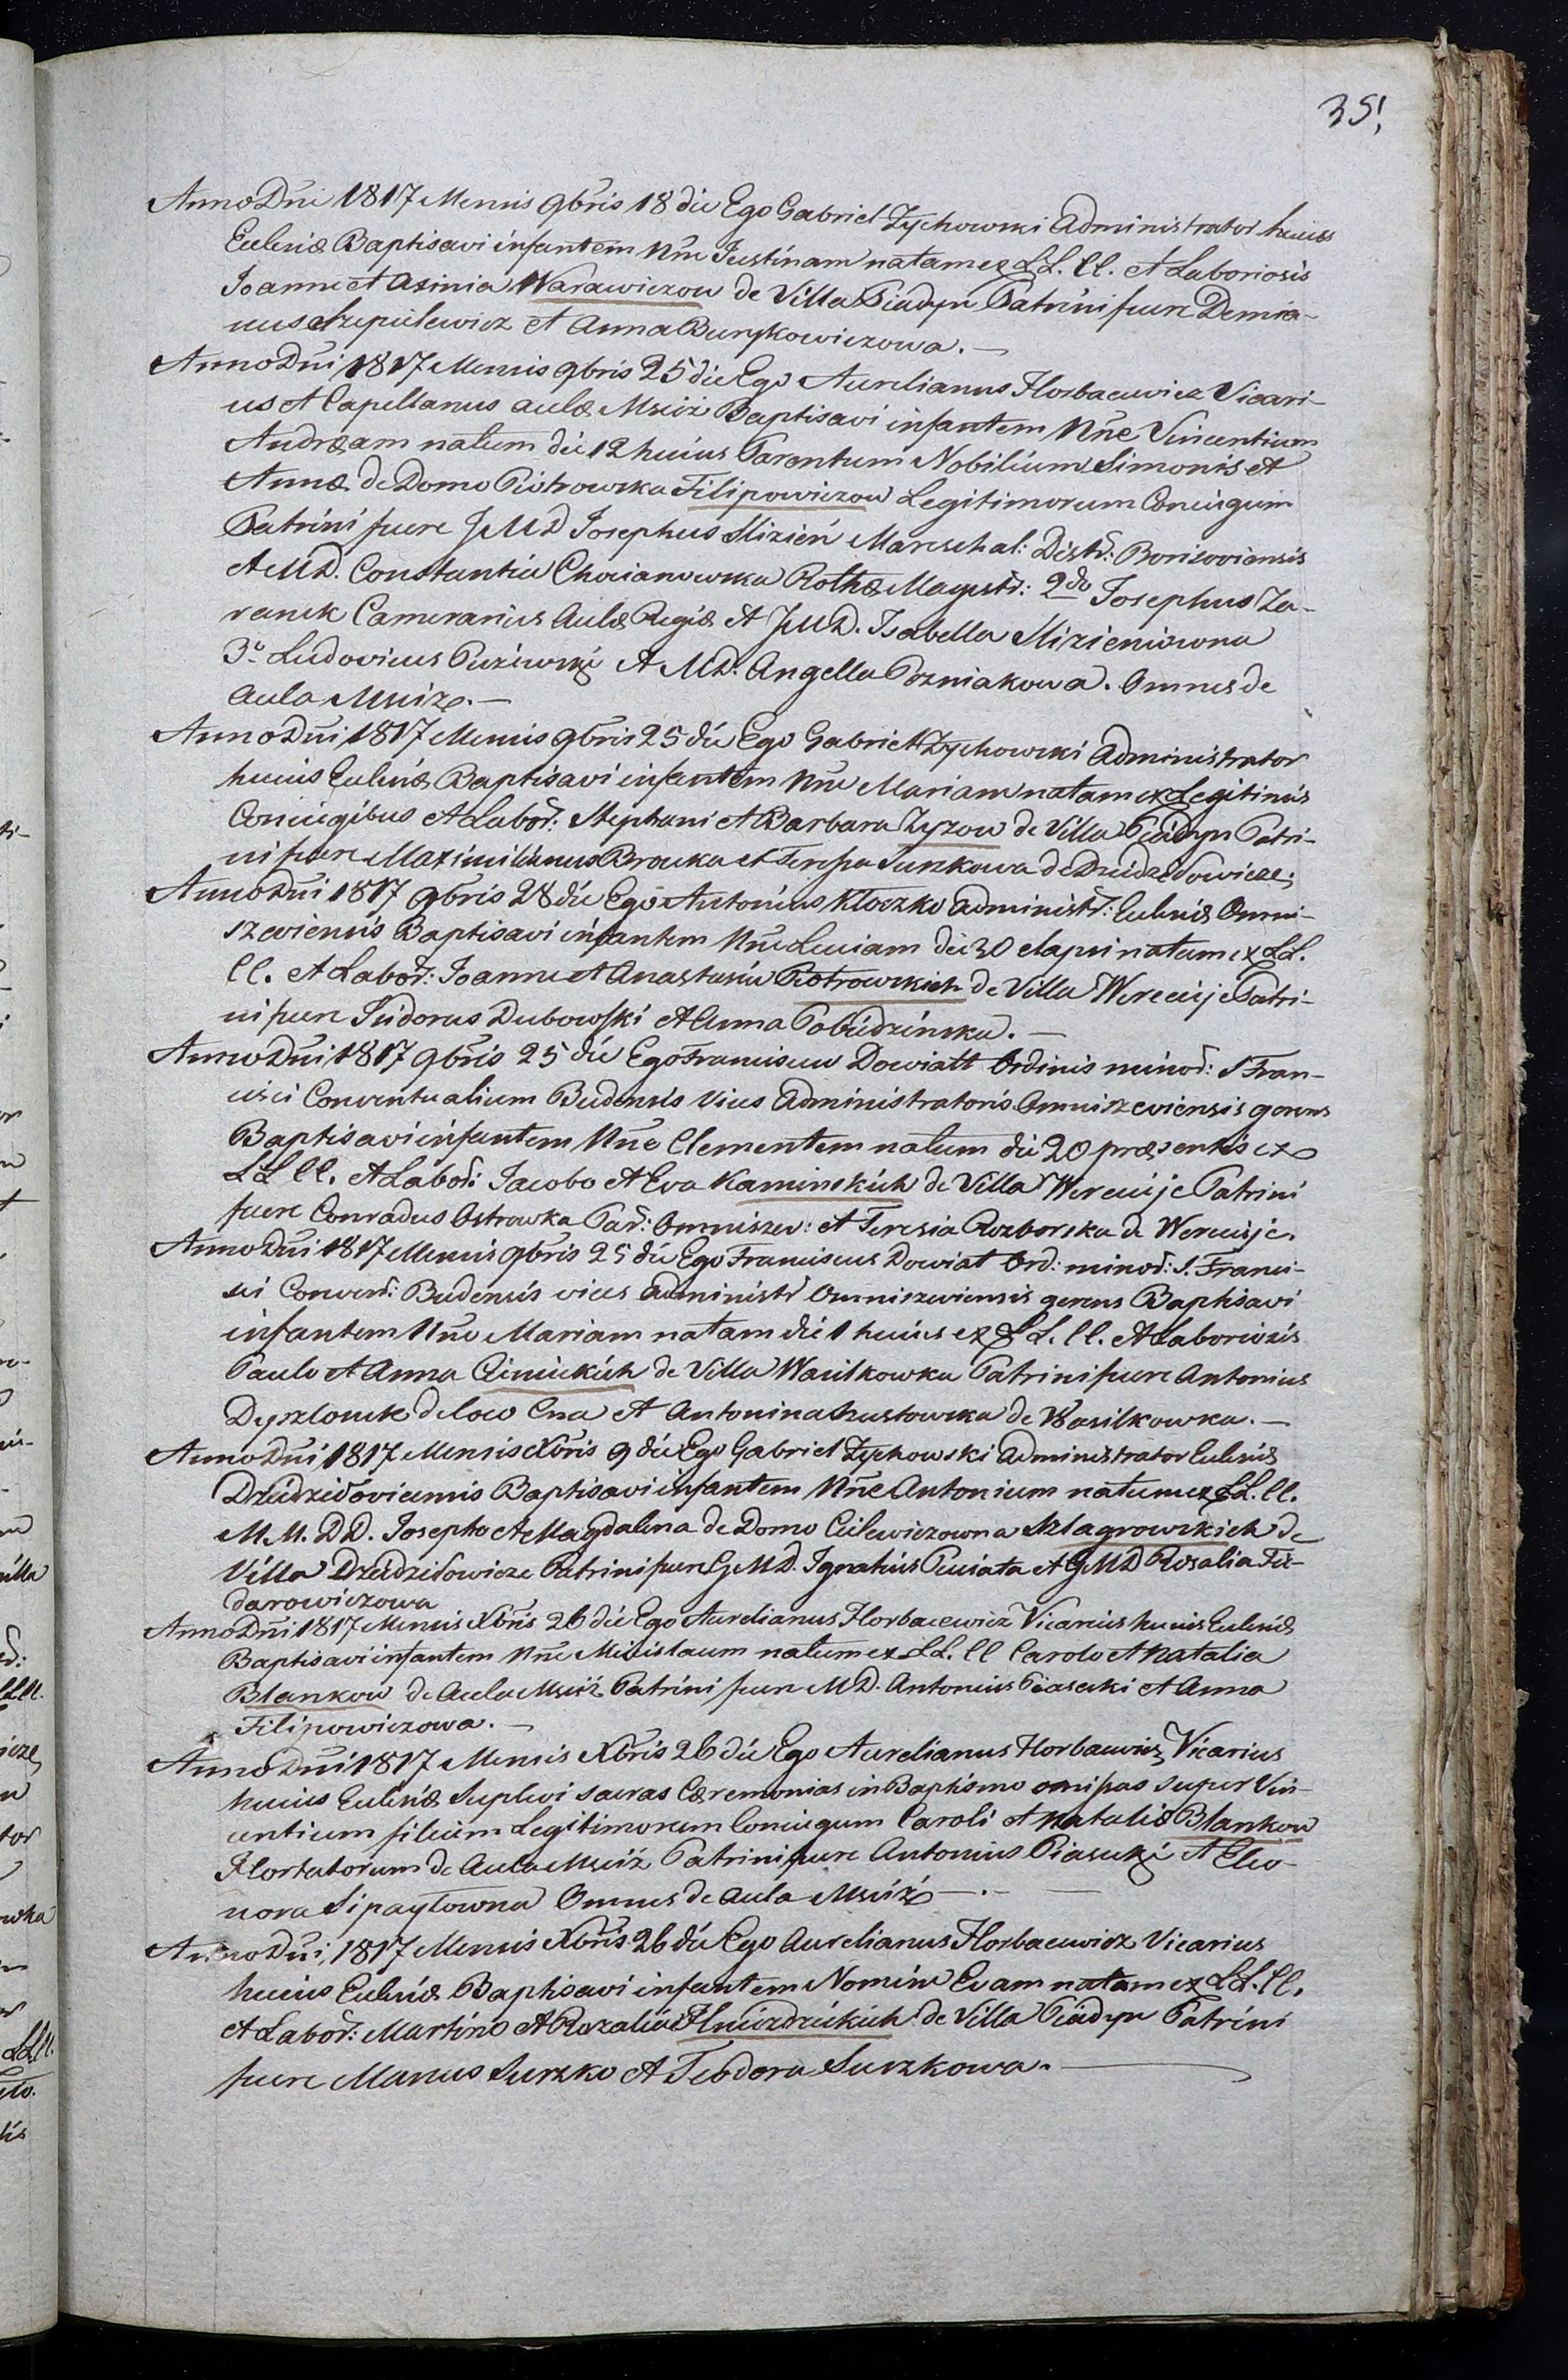 35!
Anno Dni 1817 Mensis 9bris 18 die Ego Gabriel Zychowski Administrator huius
Eccleniæ Baptisavi infantem Nne Justinam natam ex LL. CC. et Laboriosis
Joanne et Axinia Warawiczow de Villa Piadyn Patrini fuere Demia-
nus Szepielewicz et Anna Burykowiczowa.—
Anno Dni 1817 Mensis 9bris 25 die Ego Aurelianus Horbacewicz Vicari-
us et Capellanus aulæ Msciż Baptisavi infantem Nne Vincentium
Andream natum die 12 huius Parentum Nobilium Simonis et
Annæ de Domo Piotrowska Filipowiczow Legitimorum Coniugum
Patrini fuere JMD Josephus Slizień Mareschal: Distr: Borisoviensis
et MD. Constantia Chocianowska Rothæ Magistr: 2do Josephus Za-
ranek Camerarius Aulæ Regiæ et JMD. Isabella Slizieniowna
3o Ludovicus Puziewski et MD. Angella Pozniakowa. Omnes de
Aula Msciż.—
Anno Dni 1817 Mensis 9bris 25 die Ego Gabriel Zychowski Administrator
huius Ecclesiæ Baptisavi infantem Nne Mariam natam ex Legitimis
Coniugibus et Labor: Stephani et Barbara Zyzow de Villa Piadyn Patri-
ni fuere Maximilianus Browka et Teressa Surzkowa de Dziedziłowicze
Anno Dni 1817 9bris 28 die Ego Antonius Kłoczko Administr: Ecclesiæ Omni-
szeviensis Baptisavi infantem Nne Luciam die 30 elapsi natam ex LL.
CC. et Labor: Joanne et Anastasia Piotrowskich de Villa Wereiuje Patri-
ni fuere Isidorus Dubowski et Anna Pobiedzinska.—
Anno Dni 1817 9bris 25 die Ego Franciscus Dowiatt Ordinis minor: S Fran-
cisci Conventualium Budensis vices Administratoris Omniszeviensis gerens
Baptisavi infantem Nne Clementem natum die 20 præsentis ex
LL CC. et Labor: Jacobo et Eva Kaminskich de Villa Wereiuje Patrini
fuere Conradus Ostrowka Par: Omniszev: et Teresia Rozborska de Wereiuje.
Anno Dni 1817 Mensis 9bris 25 die Ego Franciscus Dowiat Ord: minor: S. Franci-
sci Convent: Budensis vices Administr Omniszeviensis gerens Baptisavi
infantem Nne Mariam natam die 1 huius ex LL. CC. et Laboriosis
Paulo et Anna Cienickich de Villa Wasilkowka Patrini fuere Antonius
Dyszlonek de loco Cna et Antonina Szustowska de Wasilkowka.—
Anno Dni 1817 Mensis Xbris 9 die Ego Gabriel Zychowski Administrator Ecclesiæ
Dziedziłoviensis Baptisavi infantem Nne Antonium natum ex LL. CC.
M.M. DD. Josepho et Magdalena de Domo Culewiczowna Szlagrowskich de
Villa Dziedziłowicze Patrini fuere GMD. Ignatius Puciata et GMD Rosalia Fie-
darowiczowa
Anno Dni 1817 Mensis Xbris 26 die Ego Aurelianus Horbacewicz Vicarius huius Ecclesiæ
Baptisavi infantem Nne Mieislaum natum ex LL. CC Carolo et Natalia
Blankow de Aula Msciż Patrini fuere MD. Antonius Piasecki et Anna
Filipowiczowa.—
Anno Dni 1817 Mensis Xbris 26 die Ego Aurelianus Horbacewicz Vicarius
huius Ecclesiæ Suplevi sacras Cæremonias in Baptismo omissas super Vin-
centium filium Legitimorum Coniugum Caroli et Nataliæ Blankow
Hortatorum de Aula Msciż Patrini fuere Antonius Piasecki et Eleo-
nora Sipayłowna Omnes de Aula Msciż—.—
Anno Dni 1817 Mensis Xbris 26 die Ego Aurelianus Horbacewicz Vicarius
huius Ecclesiæ Baptisavi infantem Nomine Evam natam ex LL. CC.
et Labor: Martino et Rozalia Hniezdzickich de Villa Piadyn Patrini
fuere Manus Surzko et Teodora Surzkowa.—